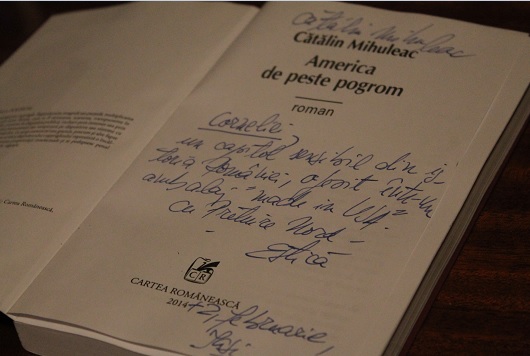 Cătălin Mihuleac
Cătălin Mihuleac
America
de peste pogrom
roman
Corneliei,
un capitol sensibil din is-
toria României, oferit într-un
ambalaj "made in USA"
cu prețuire Nord-
- Estică
CR
CARTEA ROMÂNEASCĂ
2014
februarie,
Iași